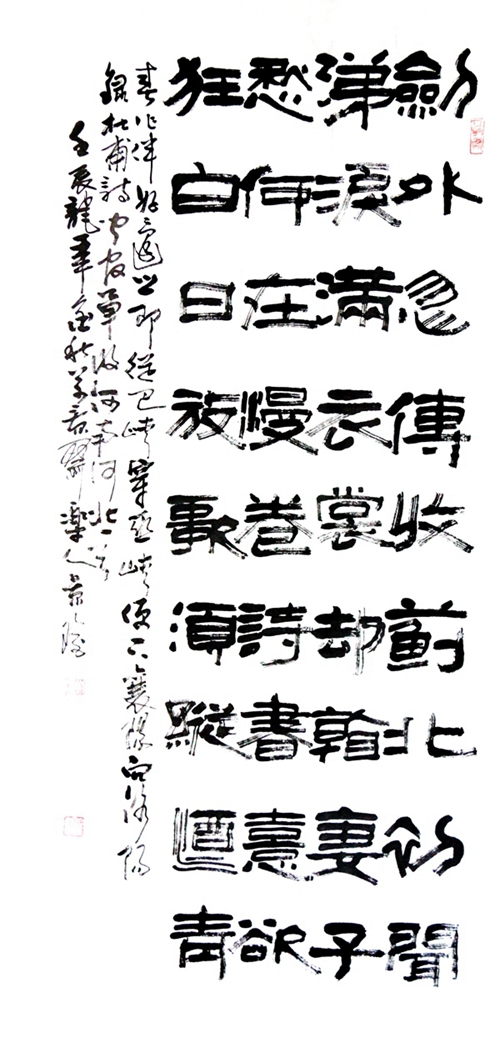 劍外忽傳收薊北初聞
涕淚滿衣裳却看妻子
愁何在漫卷詩書喜欲
狂白日放歌須縱酒青
春作伴好還鄉即從巴峽穿巫峽便下襄陽向洛陽
錄杜甫詩聞官軍收河南河北一首
壬辰龍年金秋